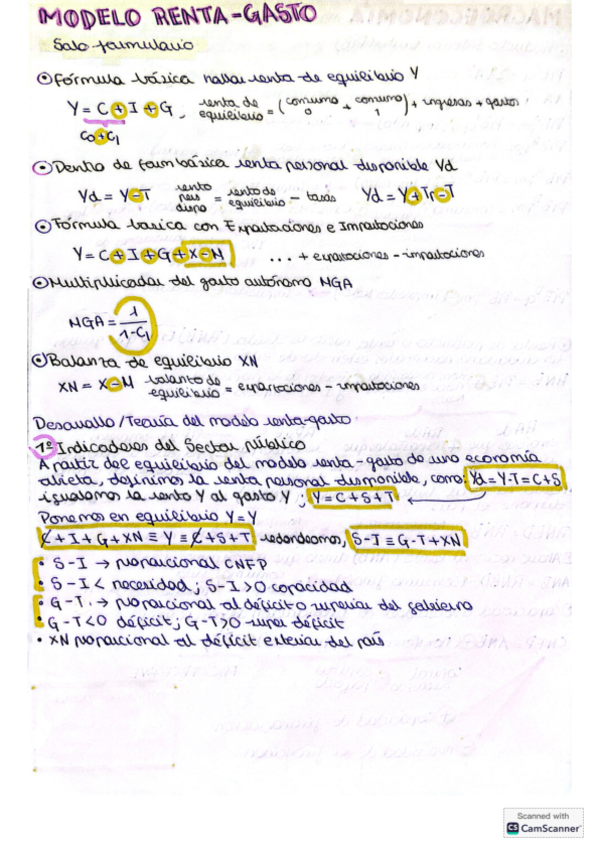 MODELO RENTA=GASTO
Solo formulario
Fórmula básica hallar renta de equilibrio Y
Y = C + I + G, renta de equilibrio = (consumo 0 + consumo 1) + ingresos + gastos
C0+C1
Dentro de form básica renta personal disponible Yd
Yd = Y-T renta pers dispo = renta de equilibrio - tasas Yd = Y+Tr-T
Fórmula basica con Exportaciones e Importaciones
Y = C+I+G+X-M ... + exportaciones - importaciones
Multiplicador del gasto autónomo MGA
MGA = 1/1-C1
Balanza de equilibrio XN
XN = X-M balanza de equilibrio = exportaciones - importaciones
Desarrollo/Teoría del modelo renta-gasto
1º Indicadores del Sector Público
A partir del equilibrio del modelo renta-gasto de una economía
abierta, definimos la renta personal disponible, como: Yd=Y-T=C+S
igualamos la renta Y al gasto Y; Y=C+S+T
Ponemos en equilibrio Y=Y
C+I+G+XN ≡ Y ≡ C+S+T redondeamos, S-I ≡ G-T+XN
• S-I → proporcional CNFP
• S-I < necesidad; S-I > 0 capacidad
• G-T. → proporcional al déficit o superior del gobierno
• G-T<0 déficit; G-T>0 super déficit
• XN proporcional al déficit exterior del país
Scanned with
CS CamScanner